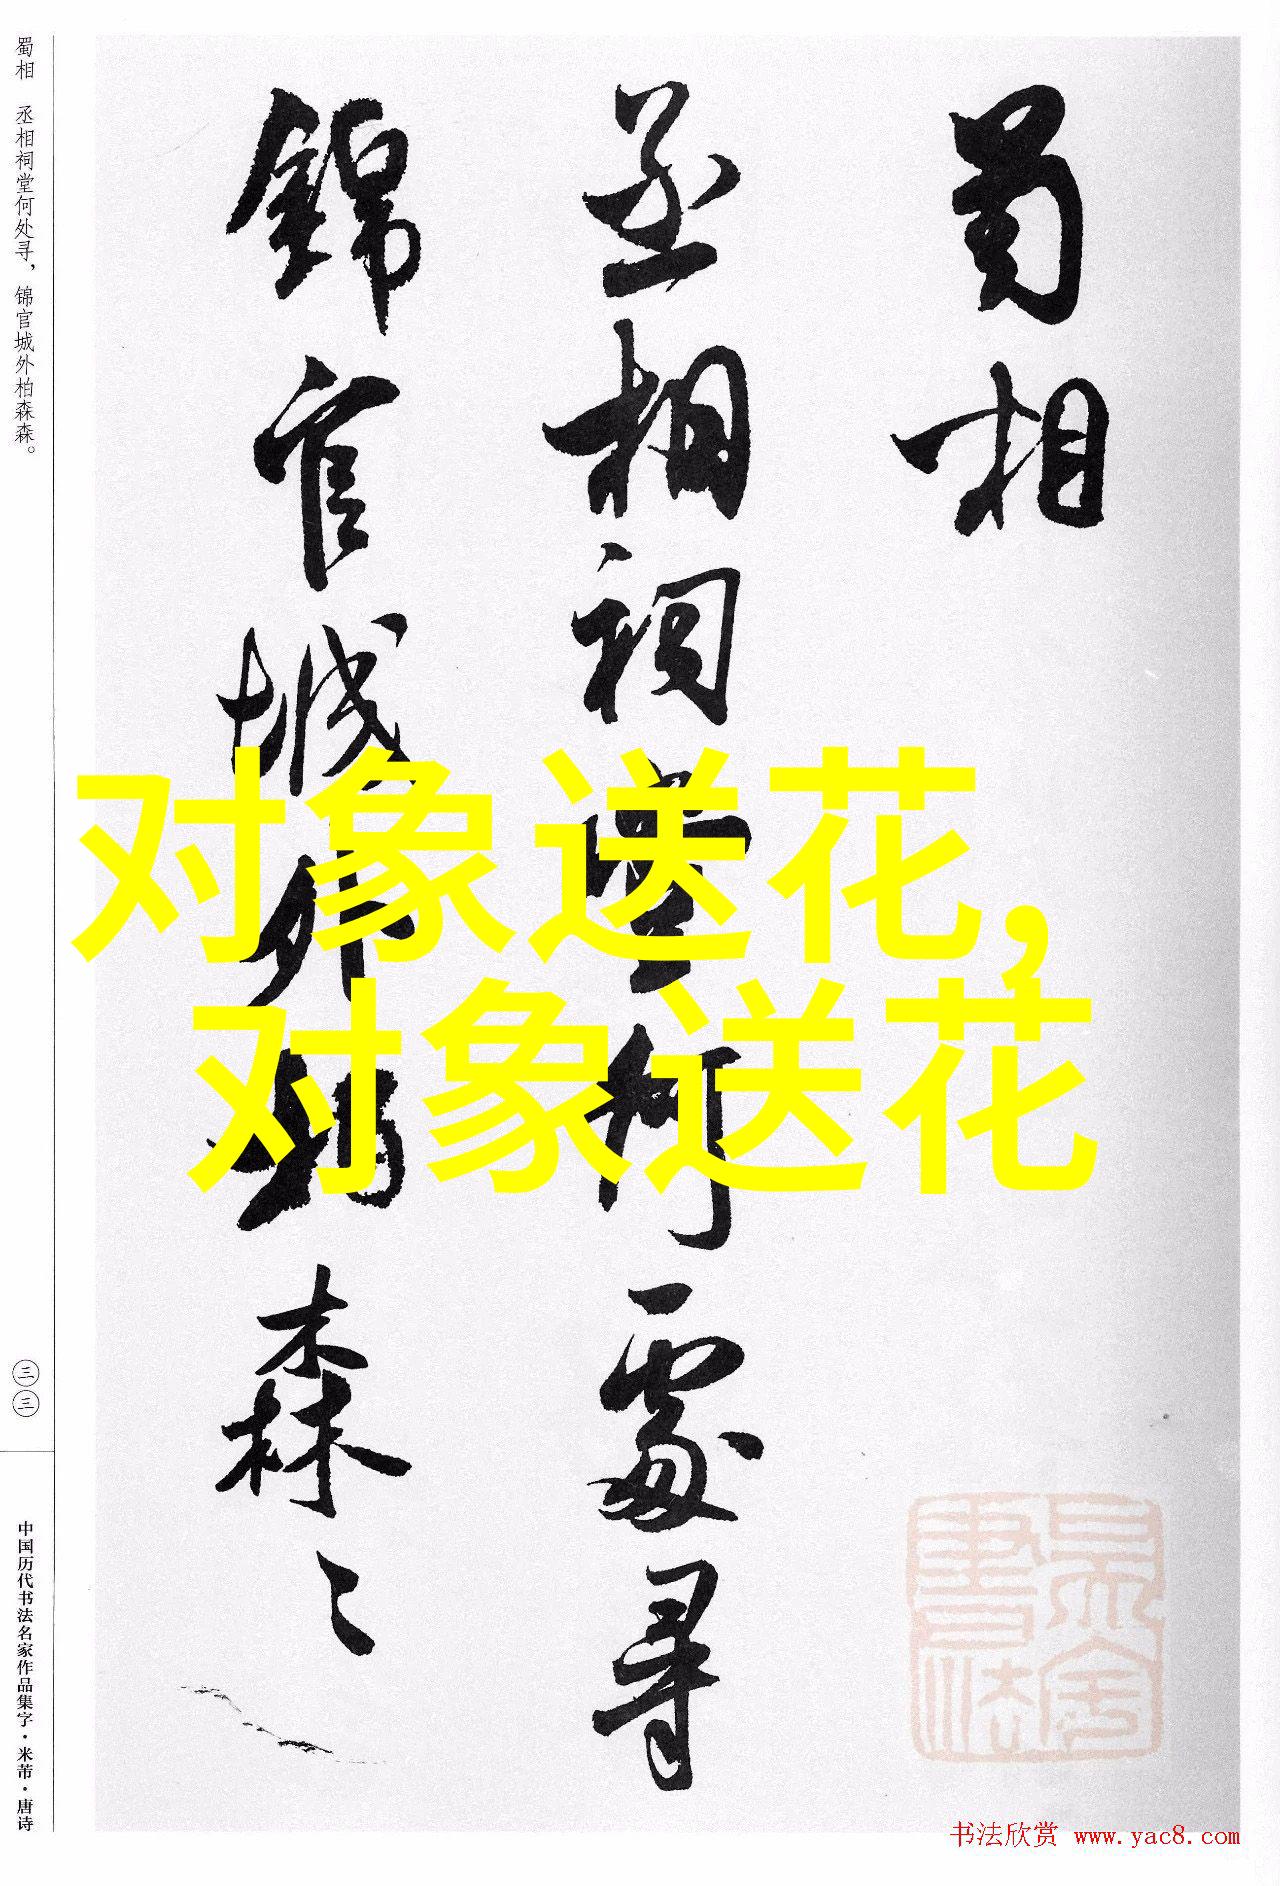 蜀相
丞相祠堂何處寻
锦官城外柏森々
对象送花，
对象送花
蜀相 丞相祠堂何处寻，锦官城外柏森森。
三三
中国历代书法名家作品集字·米芾·唐诗
书法欣赏 www.yac8.com